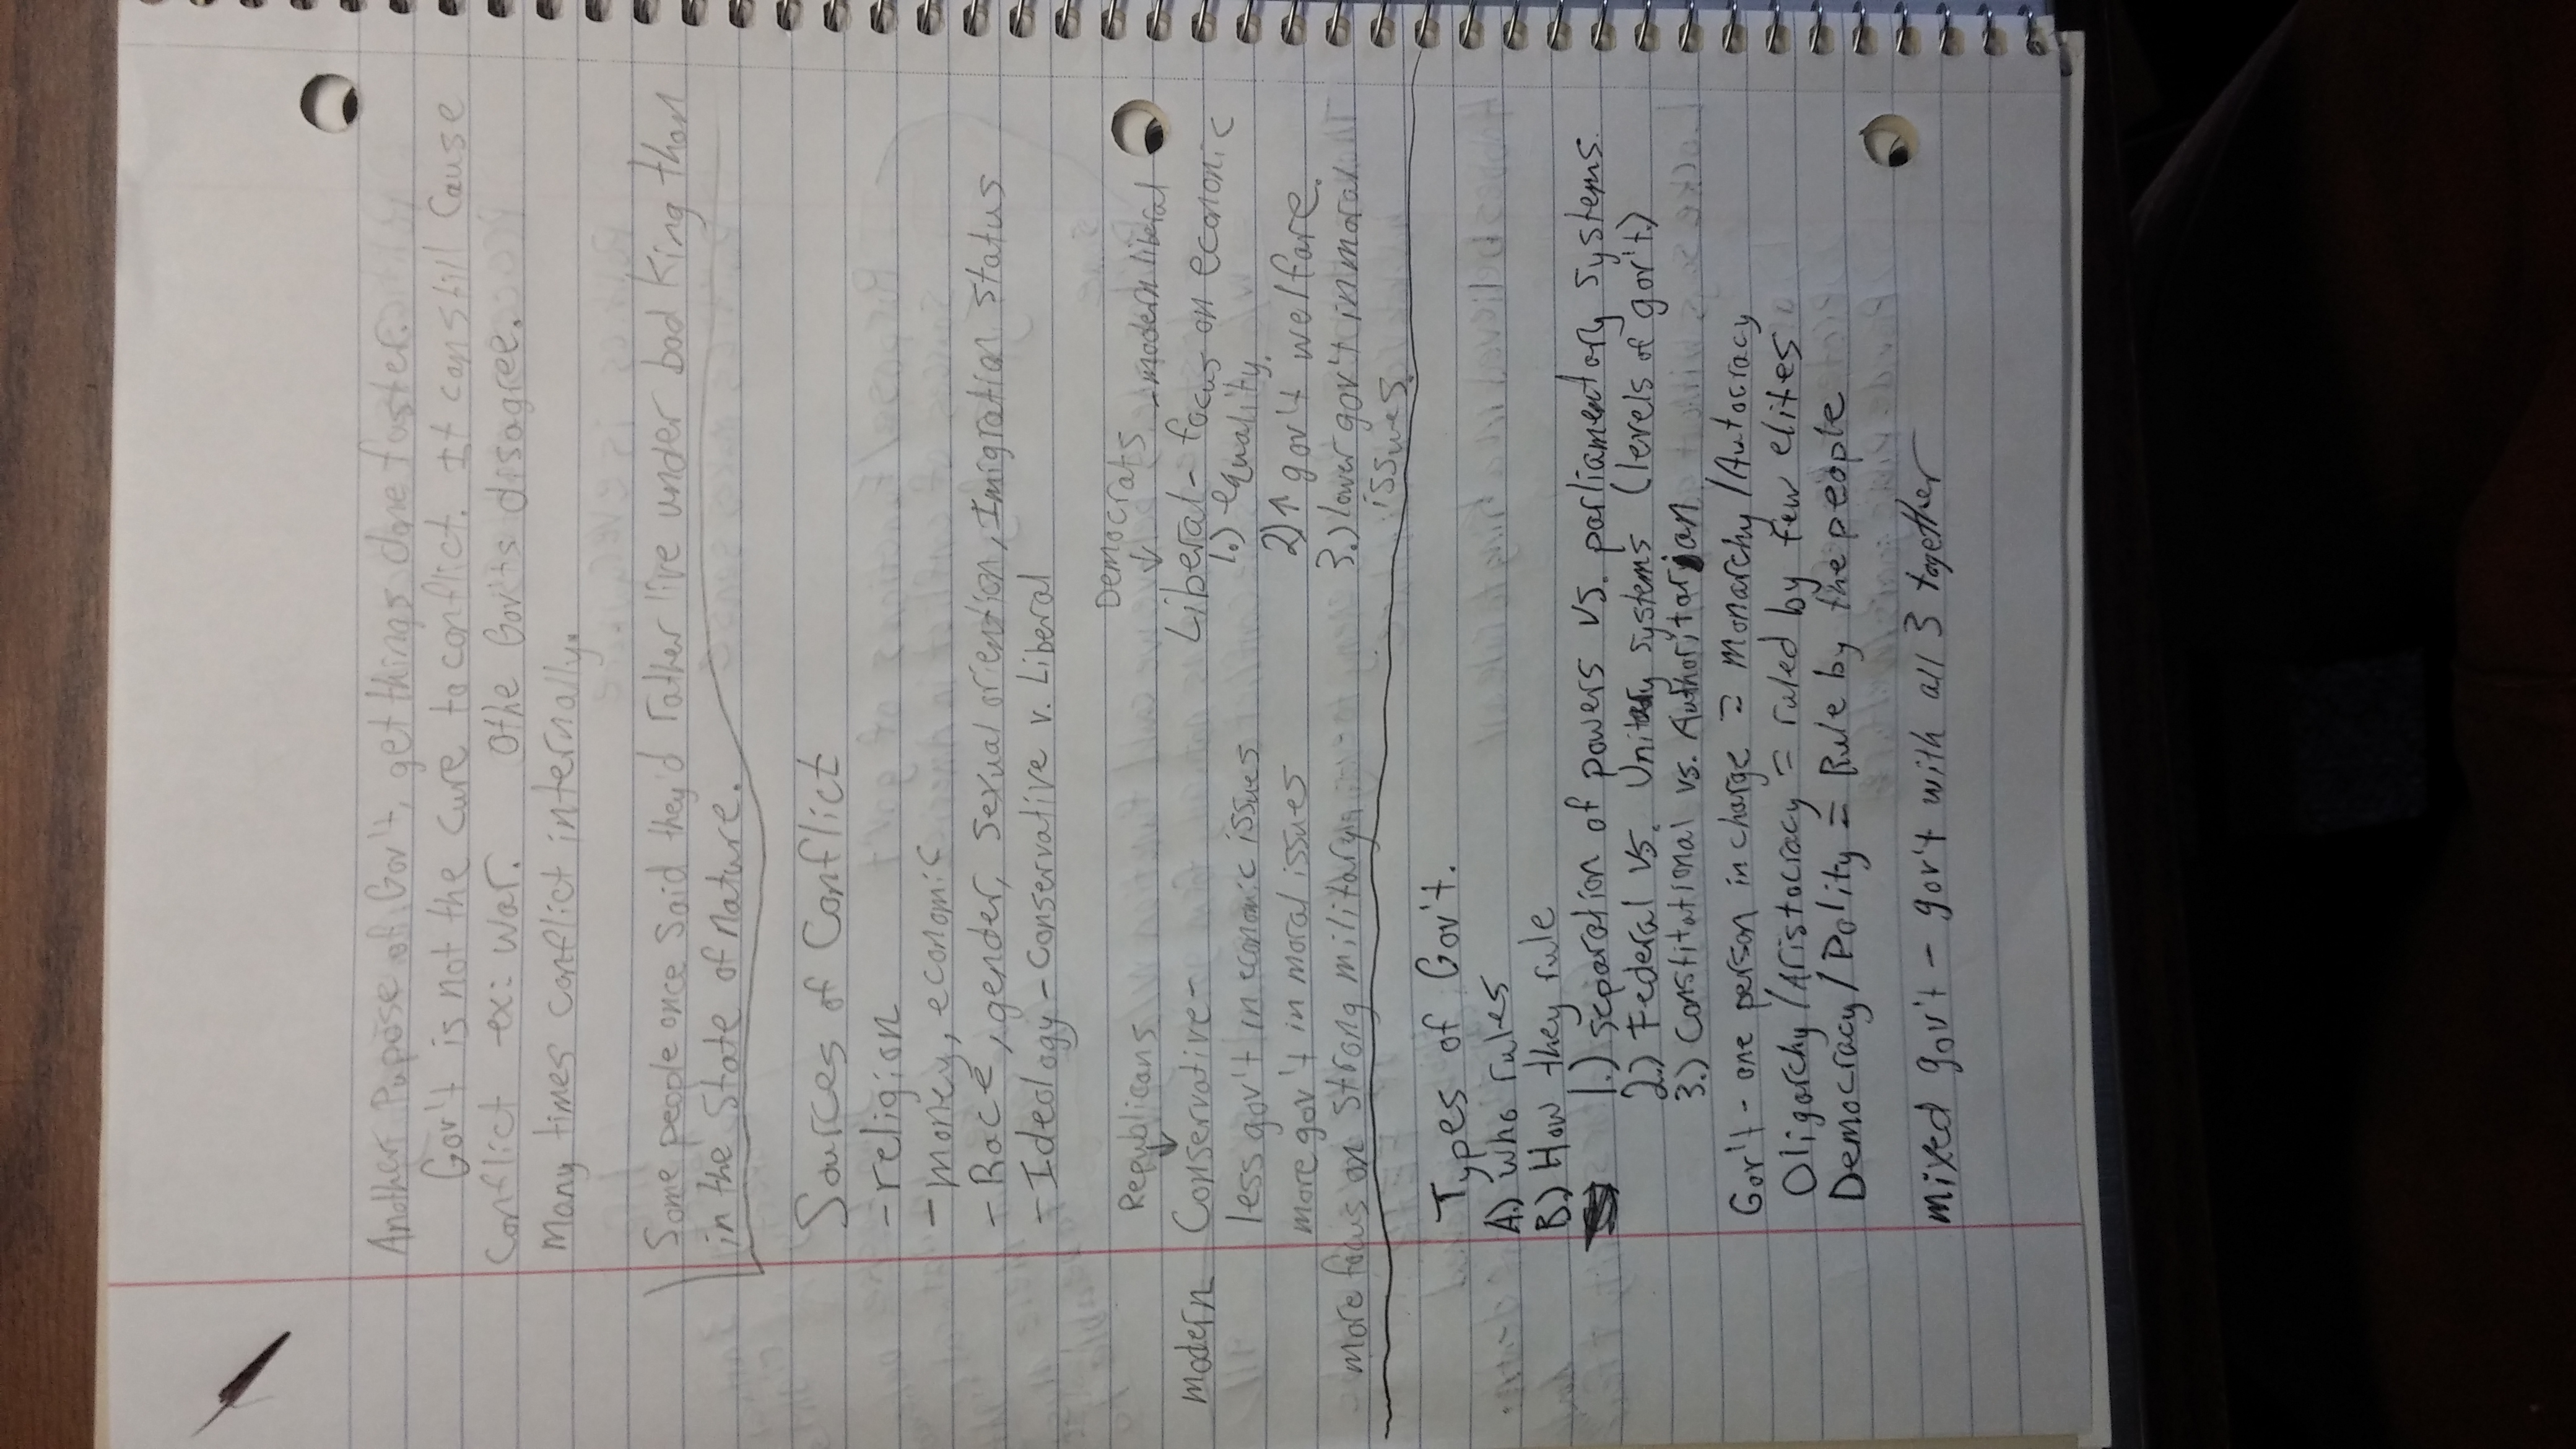 Another Pupose of Gov't, get things done faster.
Gov't is not the cure to conflict. It can still cause
conflict - ex: war. Othe Gov'ts disagree.
Many times conflict internally.
Some people once said they'd rather live under bad king than
in the State of Nature.
Sources of Conflict
- religion
- money, economic
- Race, gender, sexual oriention, Imigration status
- Ideology - Conservative v. Liberal
Republicans
modern Conservative -
less gov't in economic issues
more gov't in moral issues
- more focus on strong military
Democrats
modern liberal
Liberal - focus on economic
1.) equality.
2) ↑ gov't welfare.
3.) lower gov't in moral
issues.
- Types of Gov't.
A.) who rules
B.) How they rule
1.) Separation of powers vs. parliamentary systems.
2.) Federal vs. Unitary systems (levels of gov't.)
3.) Constitutional vs. Authoritarian
Gov't - one person in charge = Monarchy/Autocracy
Oligarchy/Aristocracy = ruled by few elites
Democracy/Polity = Rule by the people
mixed gov't - gov't with all 3 together